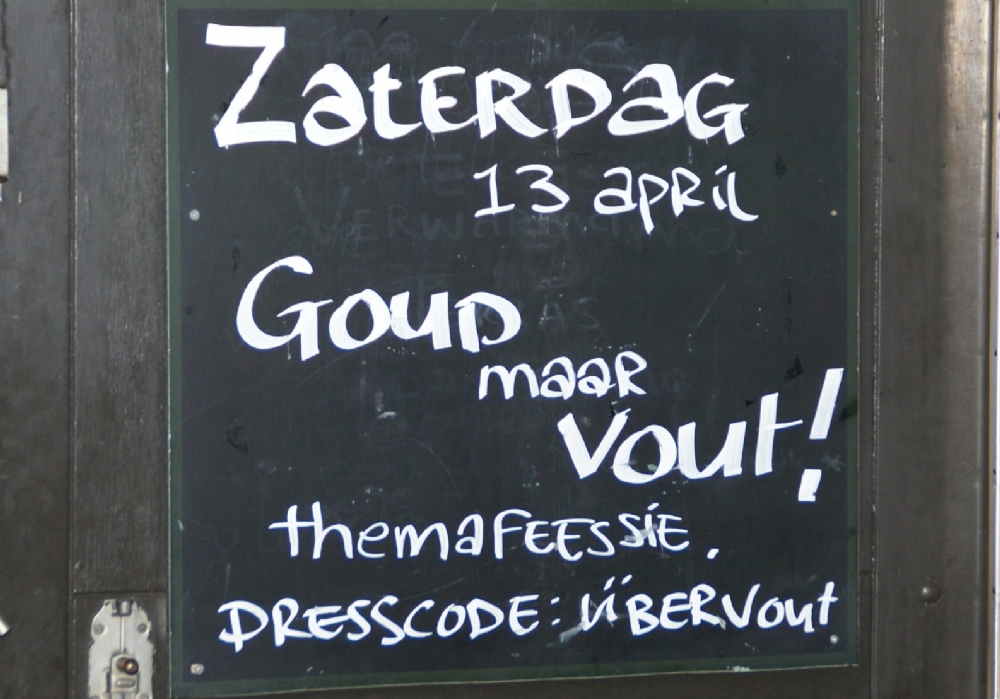 ZATERDAG
13 april
GOUD
maar
vout!
themaFEESSIE.
DRESSCODE: ÜBERVOUT